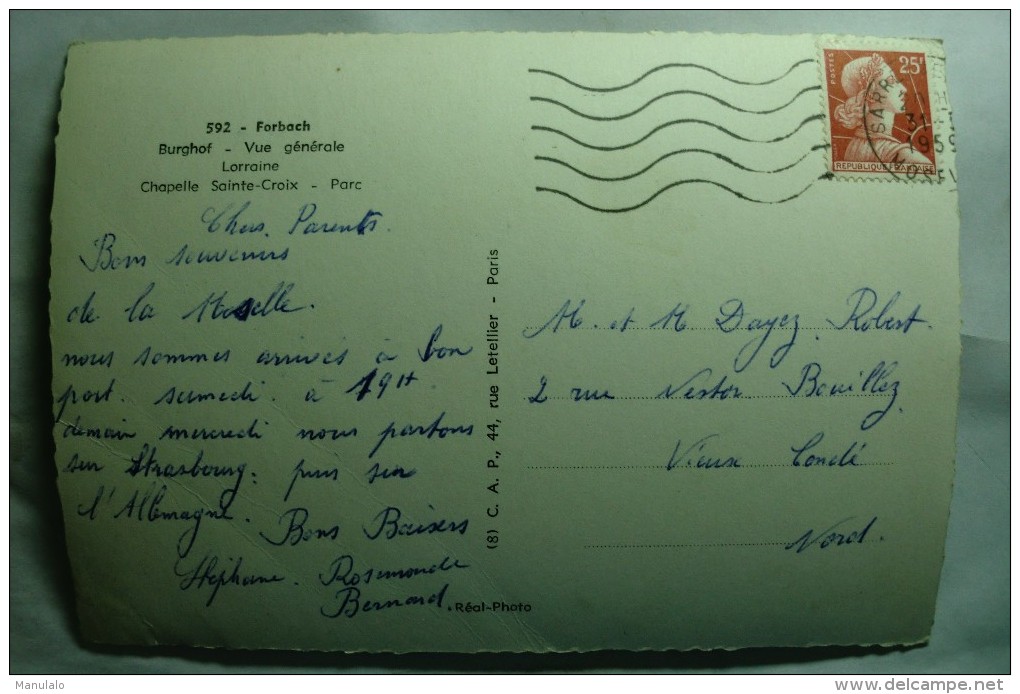 592 - Forbach
Burghof - Vue générale
Lorraine
Chapelle Sainte-Croix - Parc
Chers Parents.
Bons souvenirs
de la Moselle.
nous sommes arrivés à bon
port. samedi. à 19H
demain mercredi nous partons
sur Strasbourg. puis sur
l'Allemagne.
Bons Baisers
Stéphane. Rosemonde
Bernard.
Réal-Photo
(8) C. A. P., 44, rue Letellier - Paris
POSTES
25F
REPUBLIQUE FRANÇAISE
31
1959
M. et M Dayez Robert.
2 rue Nestor Bouillez
Vieux Condé
Nord.
Manulalo
www.delcampe.net